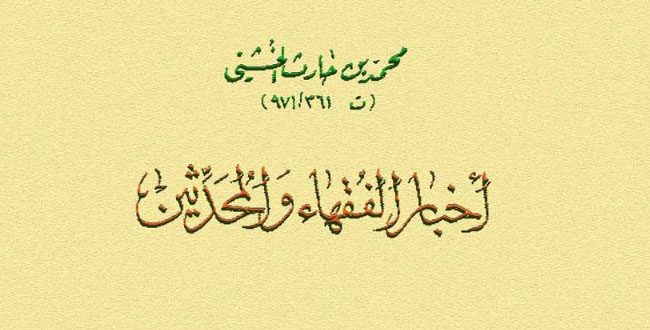 محمد بن حارث الخشني
(ت ٣٦١/٩٧١)
أخبار الفقهاء والمحدثين